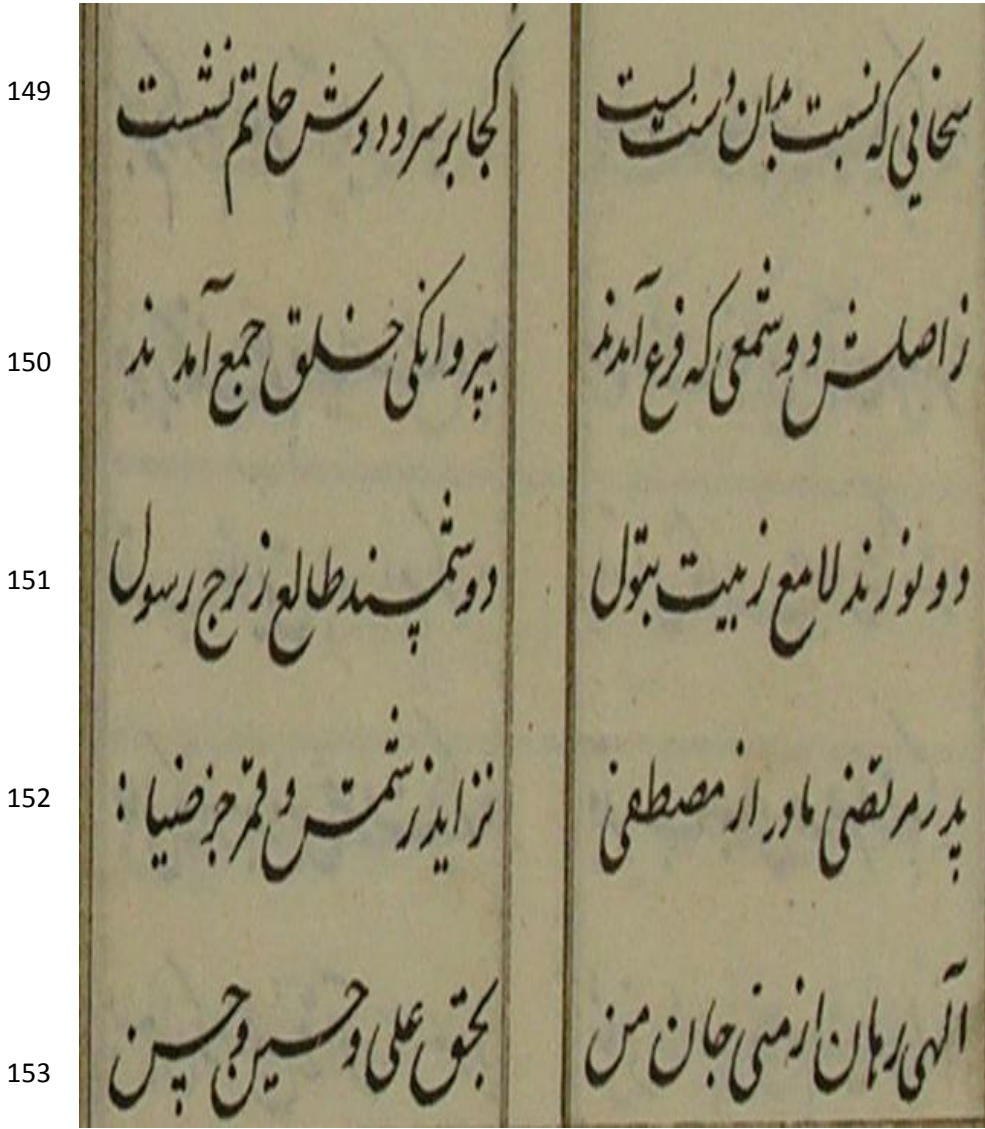 149 سخائی که نسبت بدان دست بست کجا بر سر و دوش حاتم نشست
150 ز اصلش دو شمعی که فرع آمدند بپروانکی خلق جمع آمدند
151 دو نورند لامع ز بیت بتول دو شمسند طالع ز برج رسول
152 پدر مرتضی مادر از مصطفی نزاید ز شمس و قمر جز ضیا
153 الهی رهان از منی جان من بحق علی و حسین و حسن